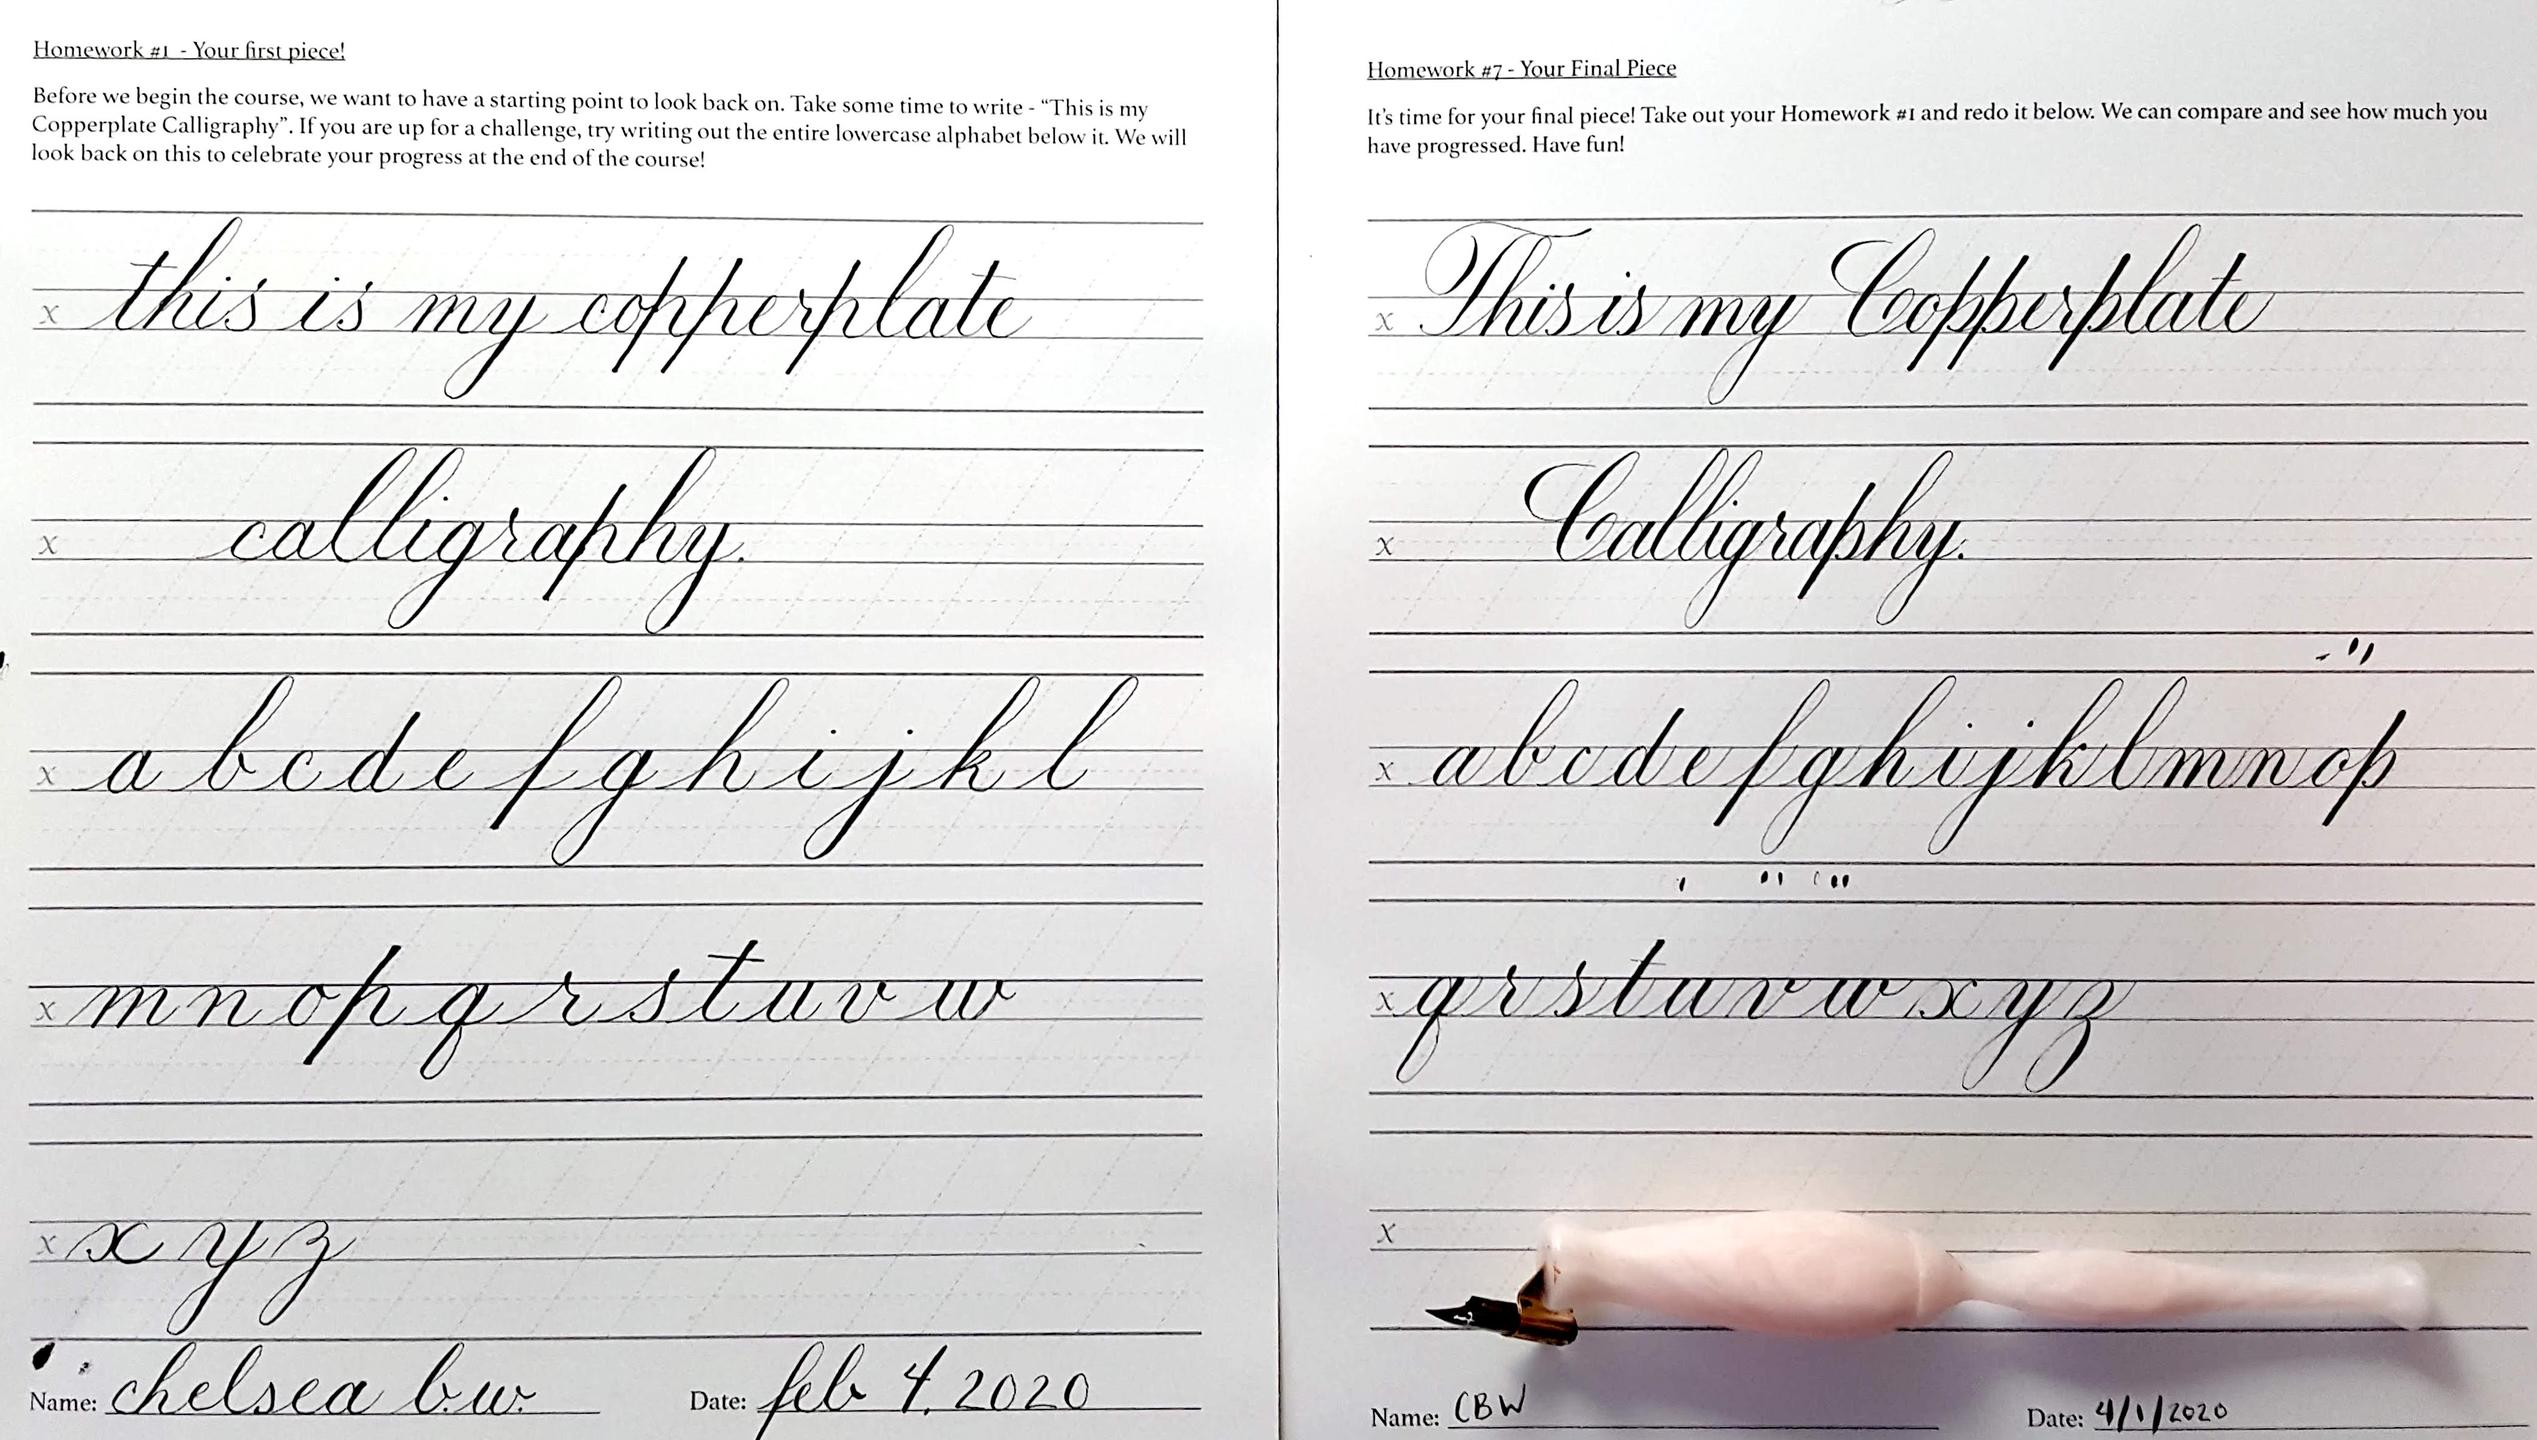 Homework #1 - Your first piece!
Before we begin the course, we want to have a starting point to look back on. Take some time to write - “This is my
Copperplate Calligraphy”. If you are up for a challenge, try writing out the entire lowercase alphabet below it. We will
look back on this to celebrate your progress at the end of the course!
x this is my copperplate
x calligraphy.
x a b c d e f g h i j k l
x m n o p q r s t u v w
x x y z
Name: chelsea b.w. Date: feb 4. 2020
Homework #7 - Your Final Piece
It's time for your final piece! Take out your Homework #1 and redo it below. We can compare and see how much you
have progressed. Have fun!
x This is my Copperplate
x Calligraphy.
x a b c d e f g h i j k l m n o p
x q r s t u v w x y z
x
Name: CBW Date: 4/1/2020